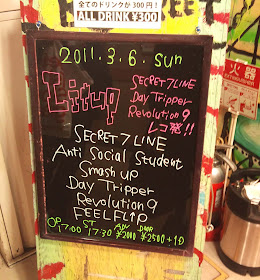 全てのドリンクが300円！
ALL DRINK ¥300
2011.3.6. sun
Lit up
SECRET 7 LINE
Day Tripper
Revolution 9
レコ発!!
SECRET 7 LINE
Anti Social Student
Smash up
Day Tripper
Revolution 9
FEELFLIP
OP 7:00 ST 7:30 ADV ¥2000 DOOR ¥2500+1D
火器